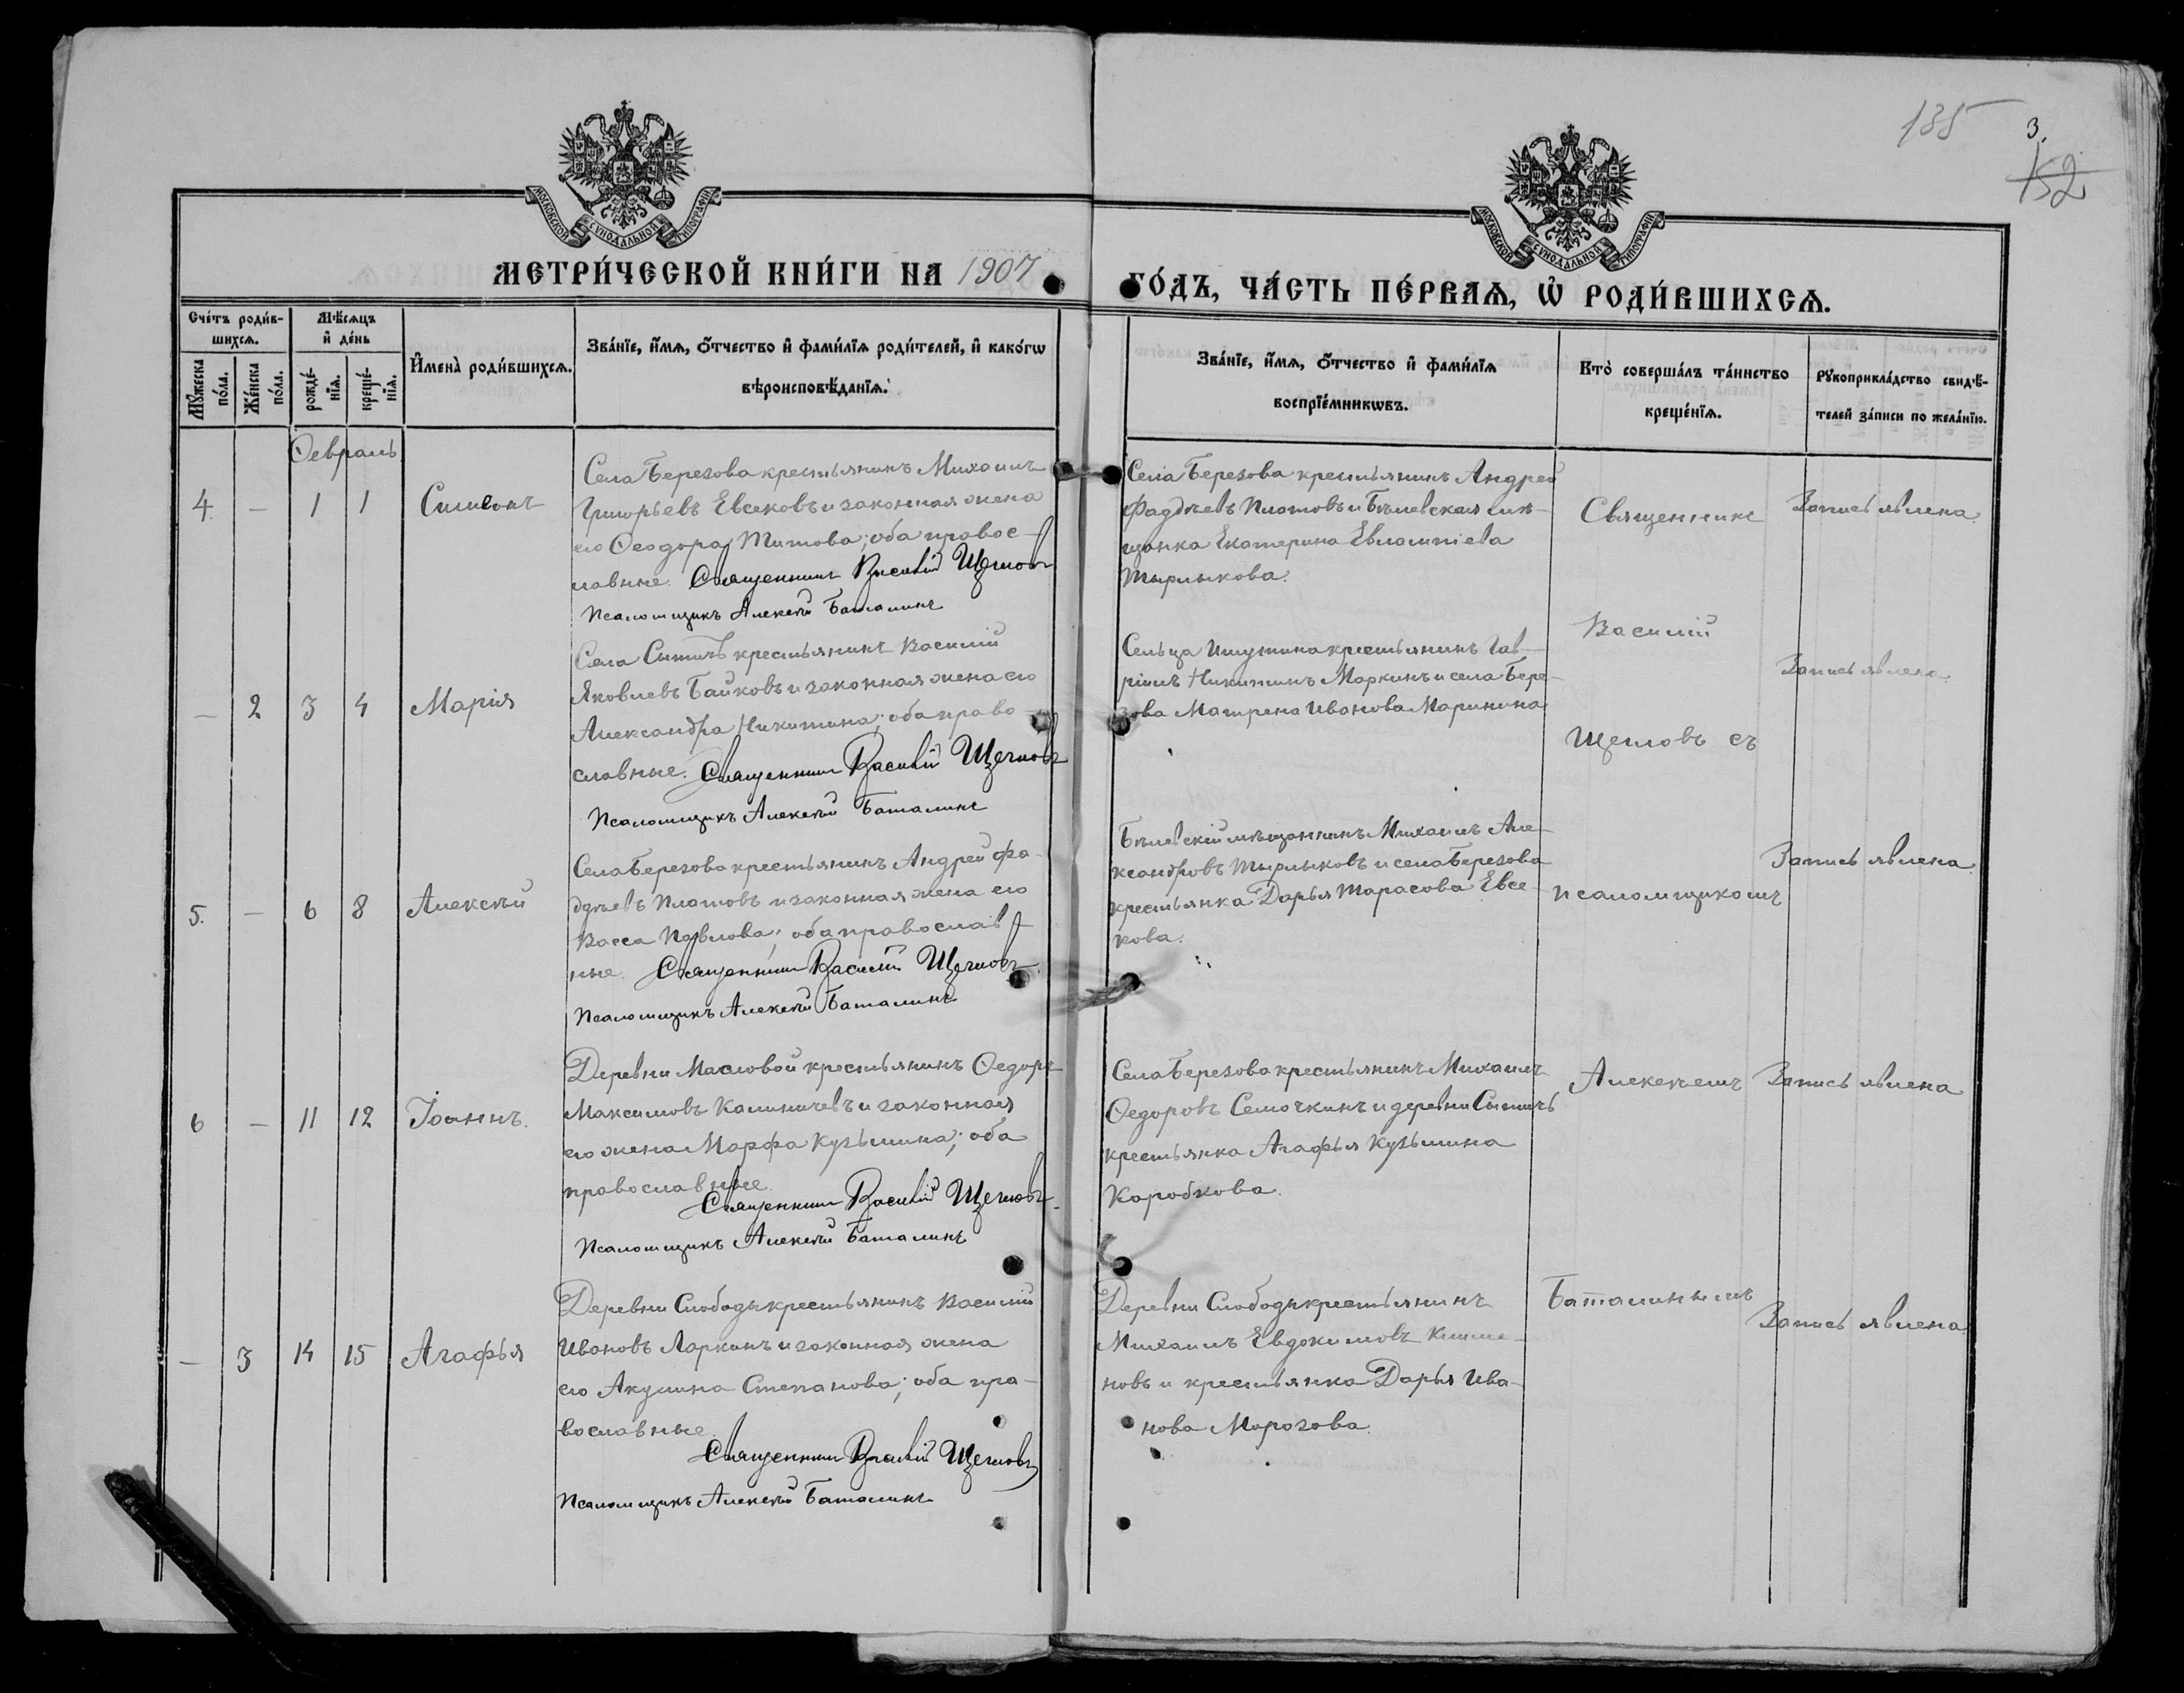 135
3.
152
МОСКОВСКОЙ СѴНОДАЛЬНОЙ ТИПОГРАФІИ
МОСКОВСКОЙ СѴНОДАЛЬНОЙ ТИПОГРАФІИ
МЕТРИ́ЧЕСКОЙ КНИ́ГИ НА 1907
ГО́ДЪ, ЧА́СТЬ ПЕ́РВАѦ, Ѡ҆ РОДИ́ВШИХСѦ.
Сче́тъ роди́в-
шихсѧ.
Мꙋ́жеска по́ла.
Же́нска по́ла.
Мѣ́сѧцъ
и҆ де́нь
рожде́-
нїѧ.
креще́-
нїѧ.
И҆мена̀ роди́вшихсѧ.
Зва́нїе, и҆́мѧ, ѻ҆́тчество и҆ фами́лїѧ роди́телей, и҆ како́гѡ
вѣроисповѣ́данїѧ.
Зва́нїе, и҆́мѧ, ѻ҆́тчество и҆ фами́лїѧ
воспрїе́мникѡвъ.
Кто̀ соверша́лъ та́инство
креще́нїѧ.
Рꙋкоприкла́дство свидѣ́-
телей за́писи по жела́нїю.
Ѳевраль
4. — 1 1 Симеонъ
Села Березова крестьянинъ Михаилъ
Григорьевъ Евсековъ и законная жена
его Ѳеодора Титова; оба правос-
лавные. Священникъ Василій Щегловъ
Псаломщикъ Алексѣй Баталинъ
Села Березова крестьянинъ Андрей
Фаддѣевъ Платовъ и Бѣлевская мѣ-
щанка Екатерина Евлампіева
Тырлыкова.
Запись явлена.
— 2 3 4 Марія
Села Сытичъ крестьянинъ Василій
Яковлевъ Байковъ и законная жена его
Александра Никитина; оба право-
славные. Священникъ Василій Щегловъ
Псаломщикъ Алексѣй Баталинъ
Сельца Ишутина крестьянинъ Гав-
ріилъ Никитинъ Маркинъ и села Бере-
зова Матрена Иванова Маринина
Запись явлена.
5. — 6 8 Алексѣй
Села Березова крестьянинъ Андрей Фа-
дѣевъ Платовъ и законная жена его
Васса Павлова; оба православ-
ные. Священникъ Василій Щегловъ.
Псаломщикъ Алексѣй Баталинъ
Бѣлевскій мѣщанинъ Михаилъ Але-
ксандровъ Тырлыковъ и села Березова
крестьянка Дарья Тарасова Евсе-
кова.
Запись явлена.
6 — 11 12 Іоаннъ.
Деревни Масловой крестьянинъ Ѳедоръ
Максимовъ Калиничевъ и законная
его жена Марфа Кузьмина; оба
православные.
Священникъ Василій Щегловъ.
Псаломщикъ Алексѣй Баталинъ
Села Березова крестьянинъ Михаилъ
Ѳедоровъ Семочкинъ и деревни Сытичъ
крестьянка Агафья Кузьмина
Коробкова.
Запись явлена
— 3 14 15 Агафья
Деревни Слободы крестьянинъ Василій
Ивановъ Ларкинъ и законная жена
его Акулина Степанова; оба пра-
вославные.
Священникъ Василій Щегловъ
Псаломщикъ Алексѣй Баталинъ
Деревни Слободы крестьянинъ
Михаилъ Евдокимовъ Климе-
новъ и крестьянка Дарья Ива-
нова Морозова.
Запись явлена.
Священникъ
Василій
Щегловъ съ
псаломщикомъ
Алексѣемъ
Баталинымъ